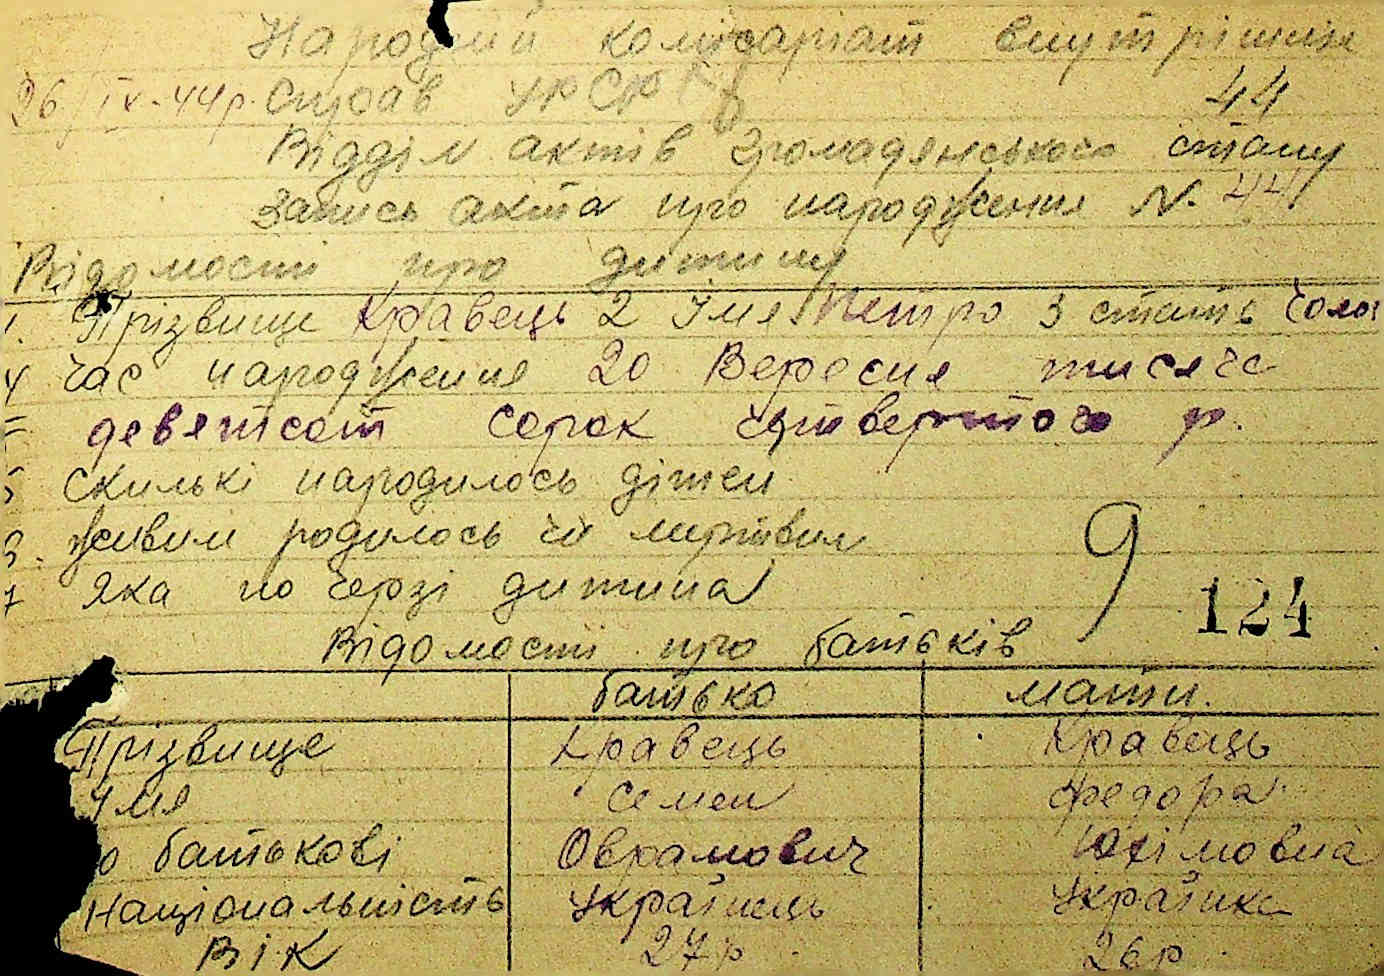 Народний комісаріат внутрішніх
26/IX-44р. Справ УРСР 44
Відділ актів громадянського стану
Запись акта про народження N. 44
Відомости про дитину
1. Прізвище Кравець 2 Імя Петро 3 стать Чолов
4 Час народження 20 Вересня тисяча
девятсот сорок четвертого р.
5 Скилькі народилось дітей
6. Живим родилось чи мертвим
7 Яка по черзі дитина
9 124
Відомости про батьків
батько мати.
Прізвище Кравець Кравець
Імя Семен Федора
по батькові Оврамович Юхімовна
Національність Українець Українка
Вік 27р. 26р.